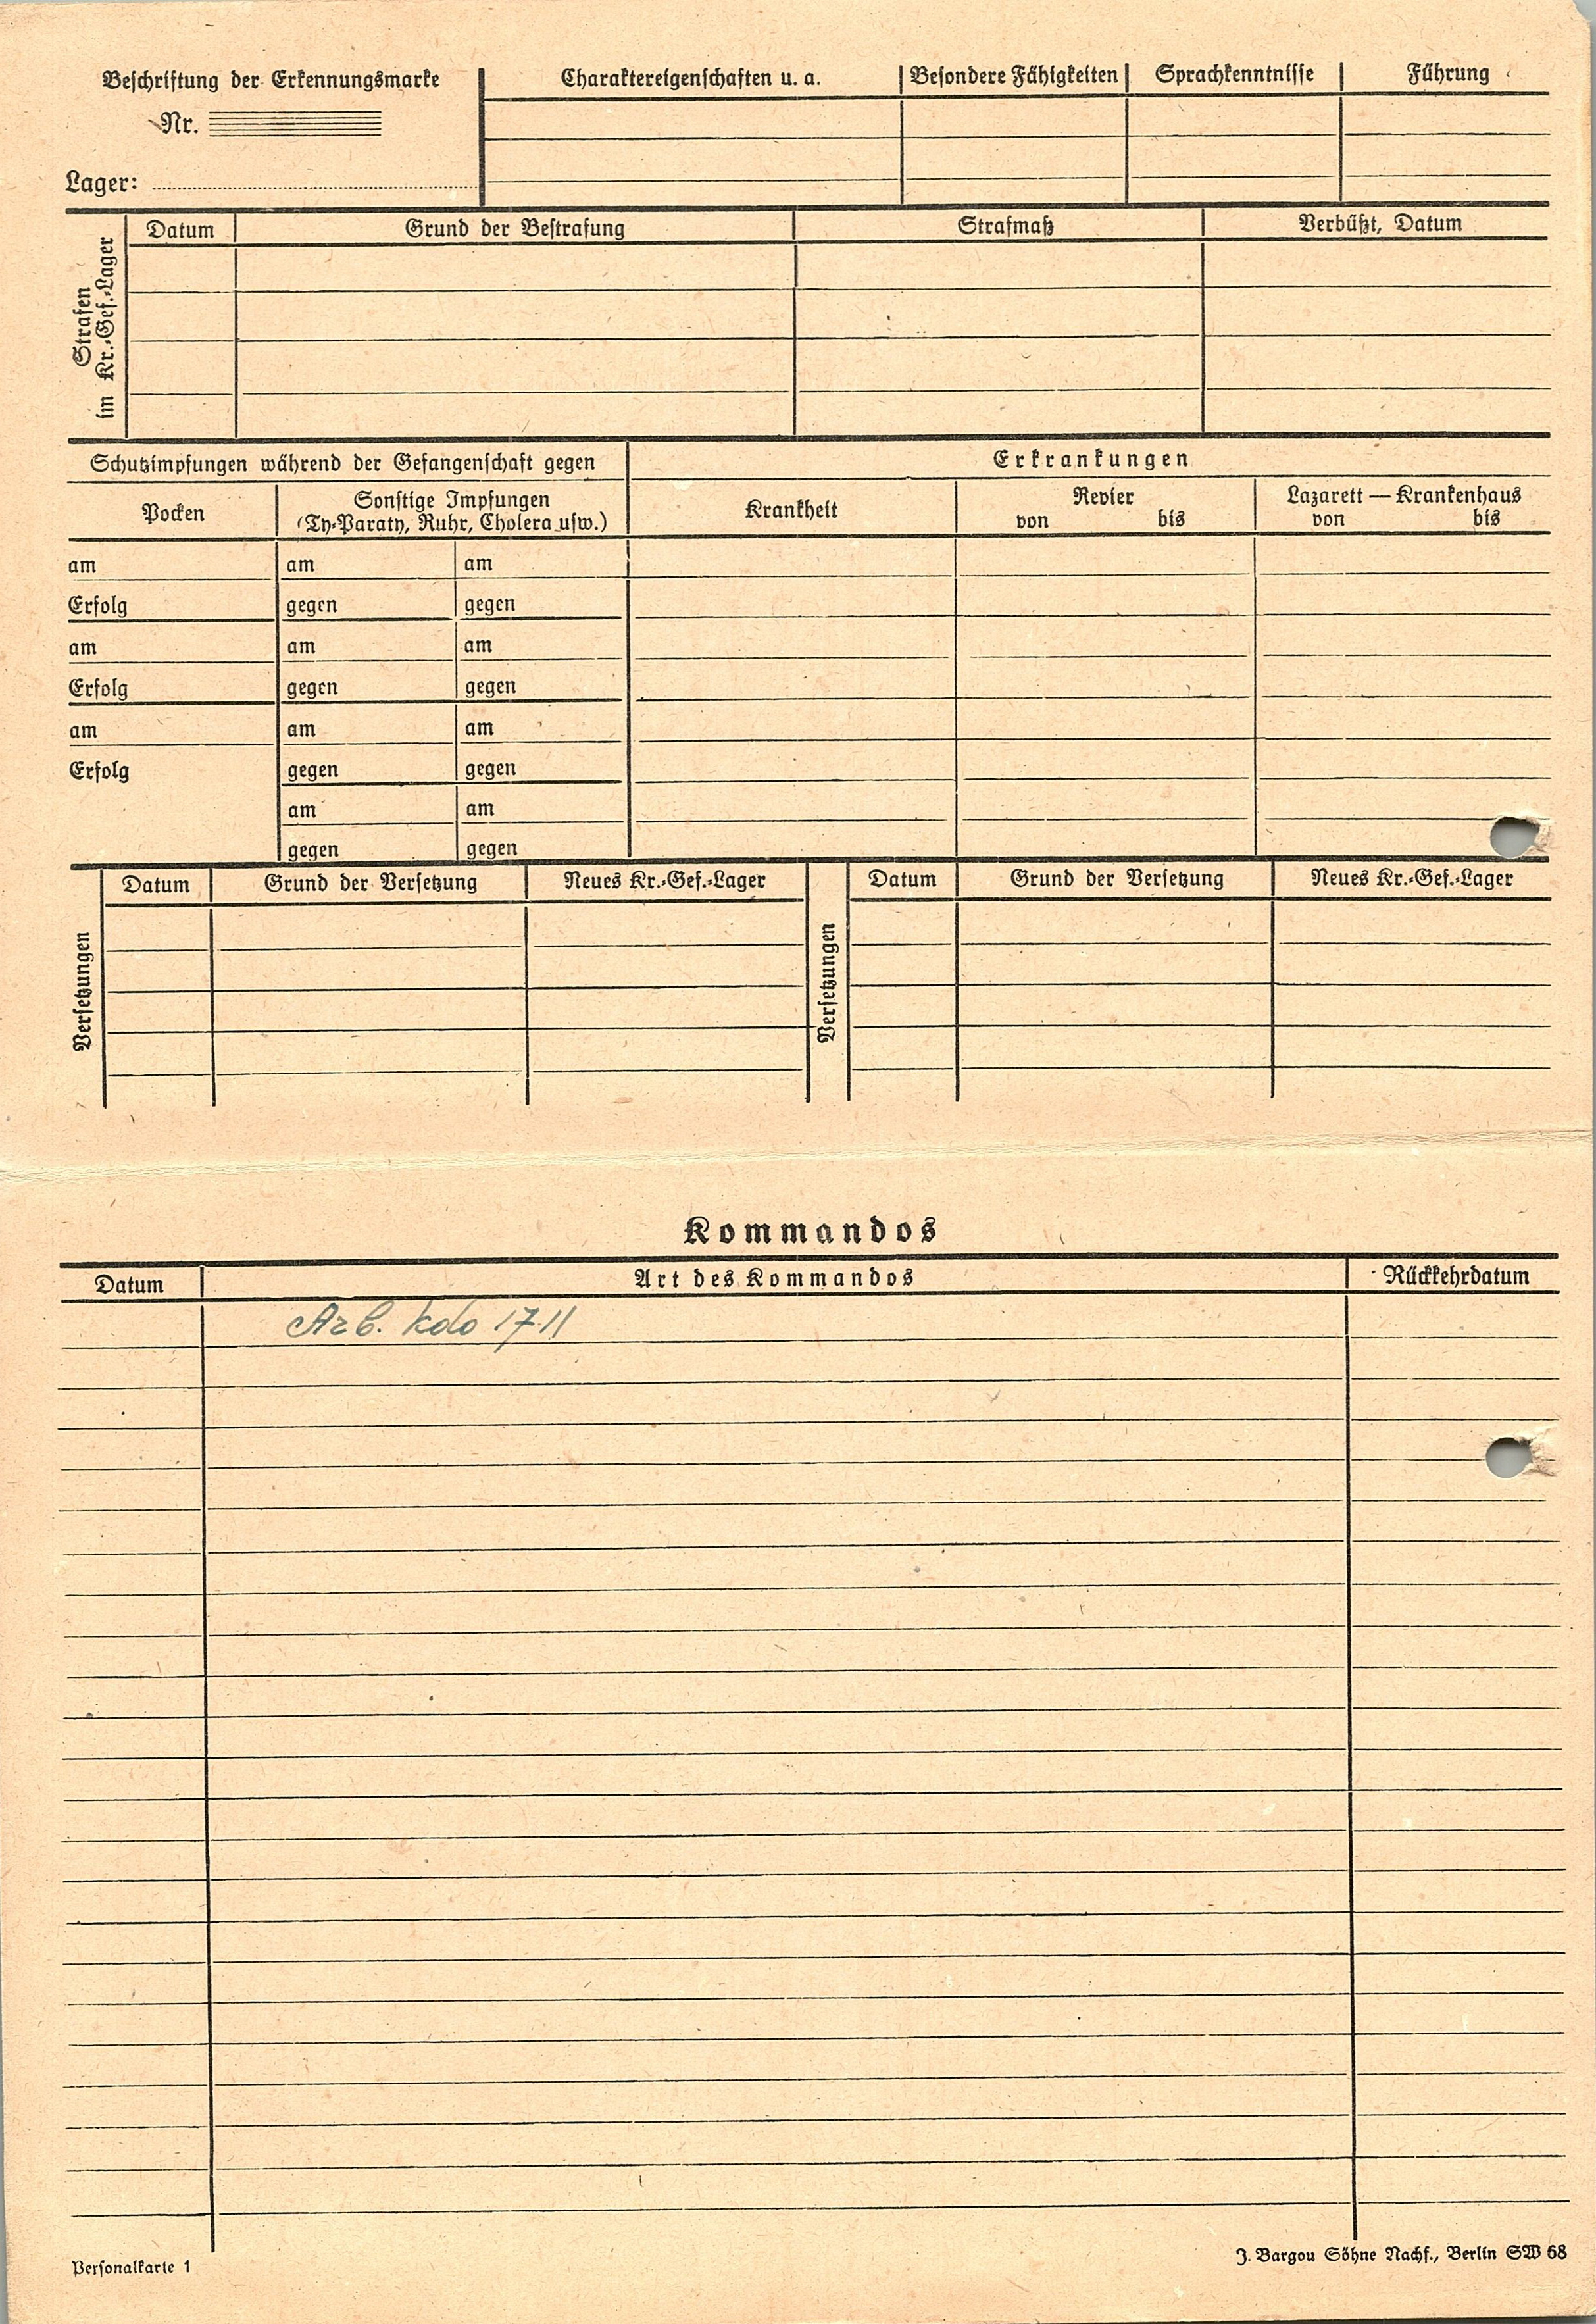 Beschriftung der Erkennungsmarke
Nr.
Lager:
Charaktereigenschaften u. a.
Besondere Fähigkeiten
Sprachkenntnisse
Führung
Strafen
im Kr.-Gef.-Lager
Datum
Grund der Bestrafung
Strafmaß
Verbüßt, Datum
Schutzimpfungen während der Gefangenschaft gegen
Erkrankungen
Pocken
Sonstige Impfungen
(Ty-Paraty, Ruhr, Cholera usw.)
Krankheit
Revier
von bis
Lazarett — Krankenhaus
von bis
am am am
Erfolg gegen gegen
am am am
Erfolg gegen gegen
am am am
Erfolg gegen gegen
am am
gegen gegen
Versetzungen
Datum Grund der Versetzung Neues Kr.-Gef.-Lager
Versetzungen
Datum Grund der Versetzung Neues Kr.-Gef.-Lager
Kommandos
Datum Art des Kommandos Rückkehrdatum
Arb. Kdo 1711
Personalkarte 1
J. Bargou Söhne Nachf., Berlin SW 68